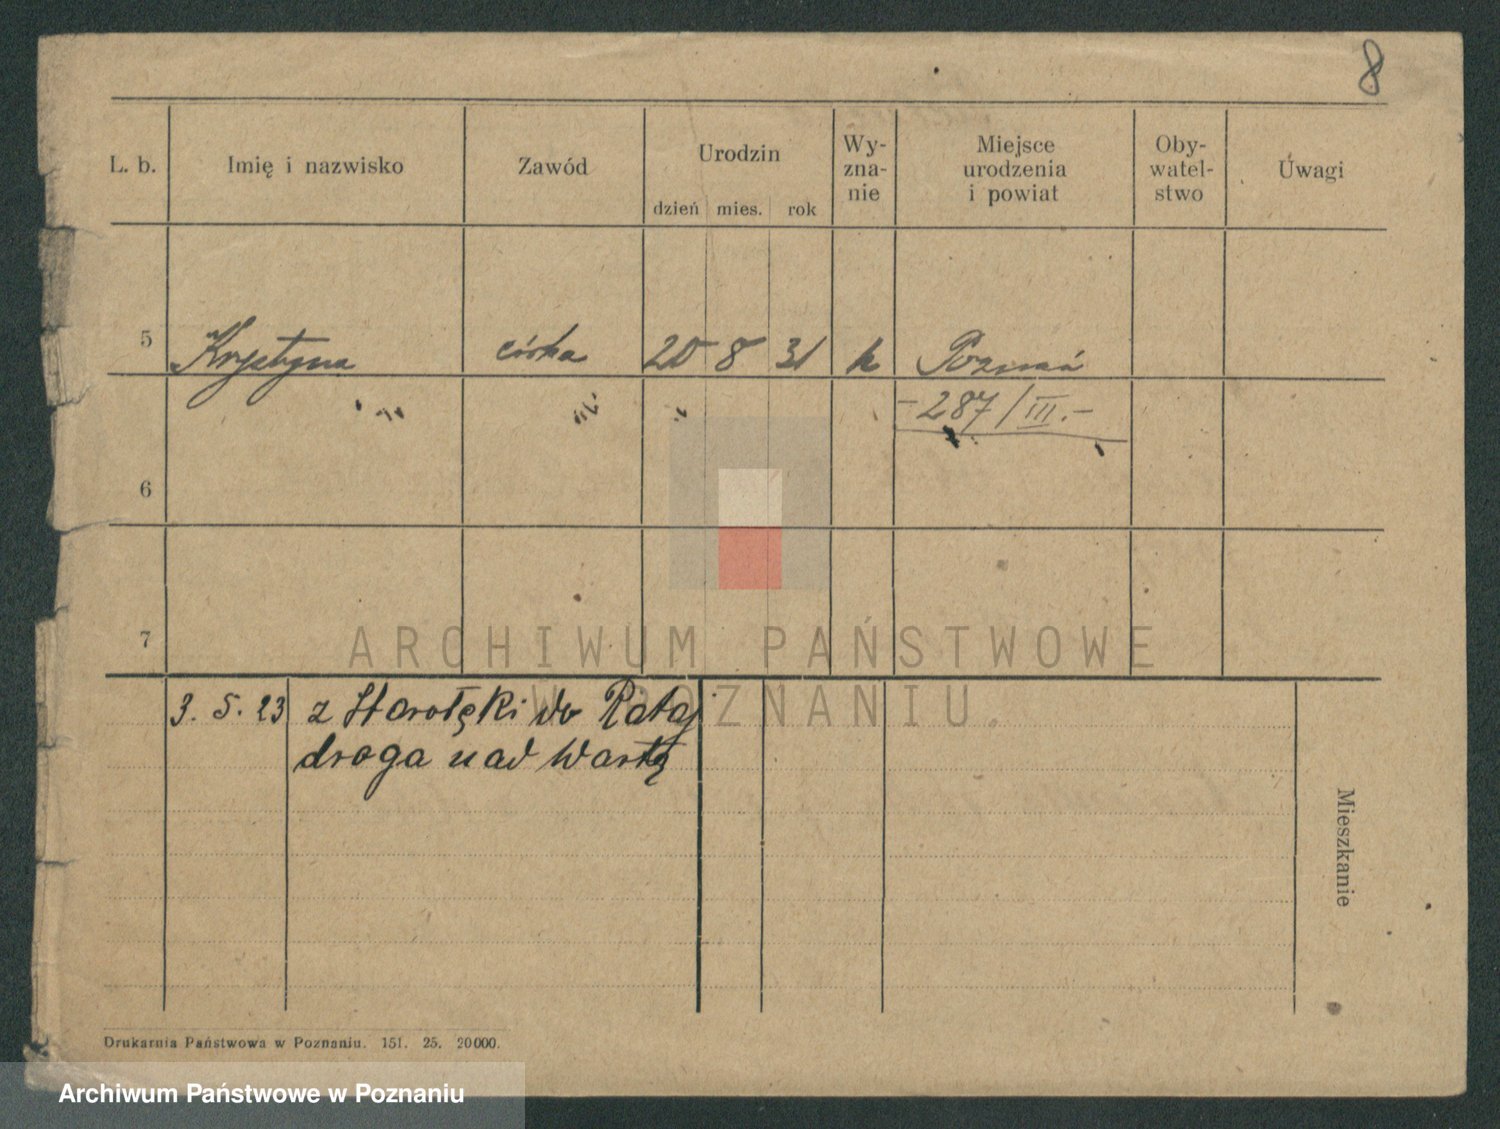 8
L. b. Imię i nazwisko Zawód Urodzin Wy- Miejsce Oby- Uwagi
zna- urodzenia watel-
dzień mies. rok nie i powiat stwo
5 Krystyna córka 20 8 31 k Poznań
-287/III.-
6
7
3. 5. 23 z Starołęki do Rataj
droga nad Wartą
Mieszkanie
Drukarnia Państwowa w Poznaniu. 151. 25. 20000.
ARCHIWUM PAŃSTWOWE
W POZNANIU.
Archiwum Państwowe w Poznaniu